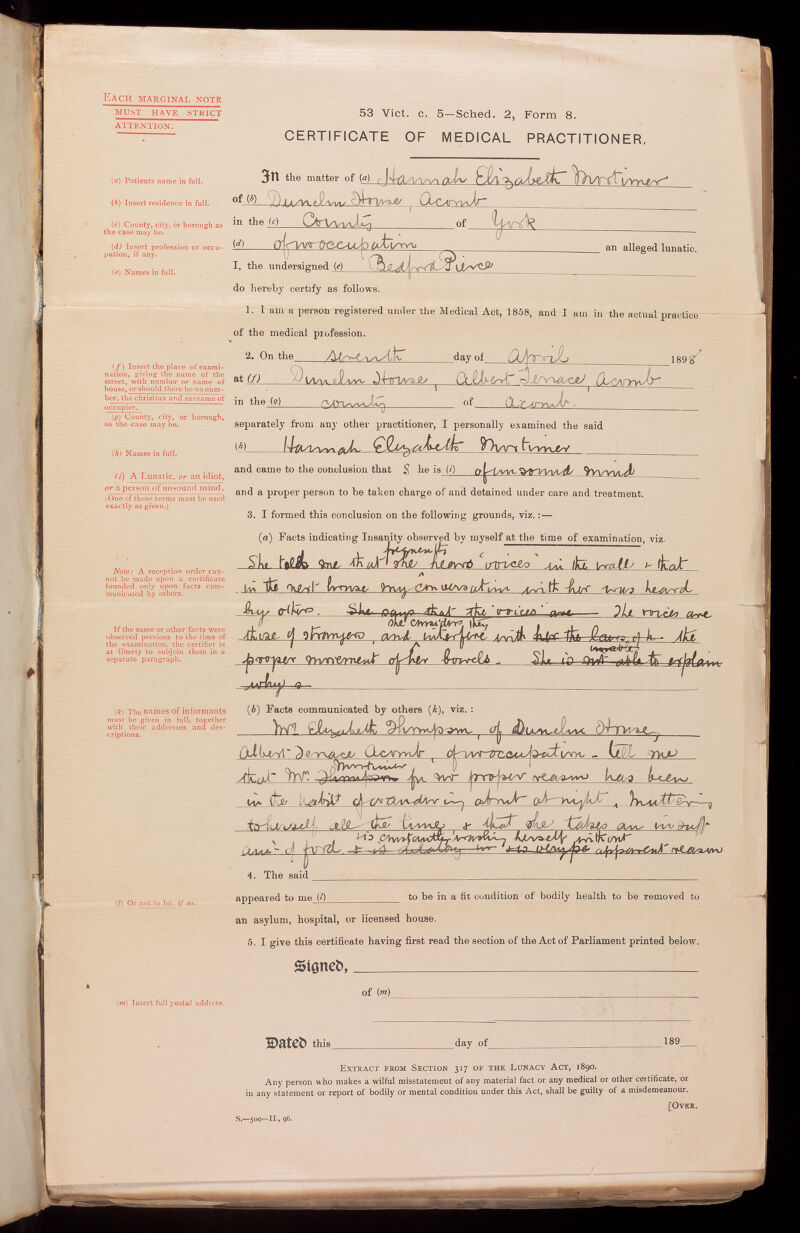 EACH MARGINAL NOTE
MUST HAVE STRICT
ATTENTION.
53 Vict. c. 5—Sched. 2, Form 8.
CERTIFICATE OF MEDICAL PRACTITIONER.
(a) Patients name in full.
In the matter of (a) Hannah Elizabeth Mortimer
(b) Insert residence in full.
of (b) Dunelm House, Acomb
(c) County, city, or borough as
the case may be.
in the (c) County of York
(d) Insert profession or occu-
pation, if any.
(d) of no occupation an alleged lunatic.
(e) Names in full.
I, the undersigned (e) Bedford Pierce
do hereby certify as follows.
1. I am a person registered under the Medical Act, 1858, and I am in the actual practice
of the medical profession.
2. On the seventh day of April 1898
(f) Insert the place of exami-
nation, giving the name of the
street, with number or name of
house, or should there be no num-
ber, the christian and surname of
occupier.
at (f) Dunelm House, Albert Terrace, Acomb
(g) County, city, or borough,
as the case may be.
in the (g) county of Acomb.
separately from any other practitioner, I personally examined the said
(h) Names in full.
(h) Hannah Elizabeth Mortimer
(i) A Lunatic, or an idiot,
or a person of unsound mind.
(One of these terms must be used
exactly as given.)
and came to the conclusion that S he is (i) of unsound mind
and a proper person to be taken charge of and detained under care and treatment.
3. I formed this conclusion on the following grounds, viz.:—
(a) Facts indicating Insanity observed by myself at the time of examination, viz.
Note: A reception order can-
not be made upon a certificate
founded only upon facts com-
municated by others.
frequently
She tells me that she hears "voices" in the wall & that
in the next house my conversation with her was heard
by others. She says that the "voices" are The voices are
If the same or other facts were
observed previous to the time of
the examination, the certifier is
at liberty to subjoin them in a
separate paragraph.
she considers they
those of strangers, and interfere with her the laws of h the
unable
proper movement of her bowels. She is not able to explain
why s
(k) The names of informants
must be given in full, together
with their addresses and des-
criptions.
(b) Facts communicated by others (k), viz.:
Mrs Elizabeth Thompson, of Dunelm House,
Albert Terrace Acomb, of no occupation - tell me
Mortimer
that Mrs Thompson for no proper reason has been
in the habit of wandering about at night, muttering
to herself all the time & that she takes an insuff-
& is constantly washing herself without
of food & is dilatory in & is very apparent reason
4. The said
(l) Or not to be, if so.
appeared to me (l) to be in a fit condition of bodily health to be removed to
an asylum, hospital, or licensed house.
5. I give this certificate having first read the section of the Act of Parliament printed below.
Signed,
(m) Insert full postal address.
of (m)
Dated this day of 189
EXTRACT FROM SECTION 317 OF THE LUNACY ACT, 1890.
Any person who makes a wilful misstatement of any material fact or any medical or other certificate, or
in any statement or report of bodily or mental condition under this Act, shall be guilty of a misdemeanour.
[OVER.
S.—500—II., 96.